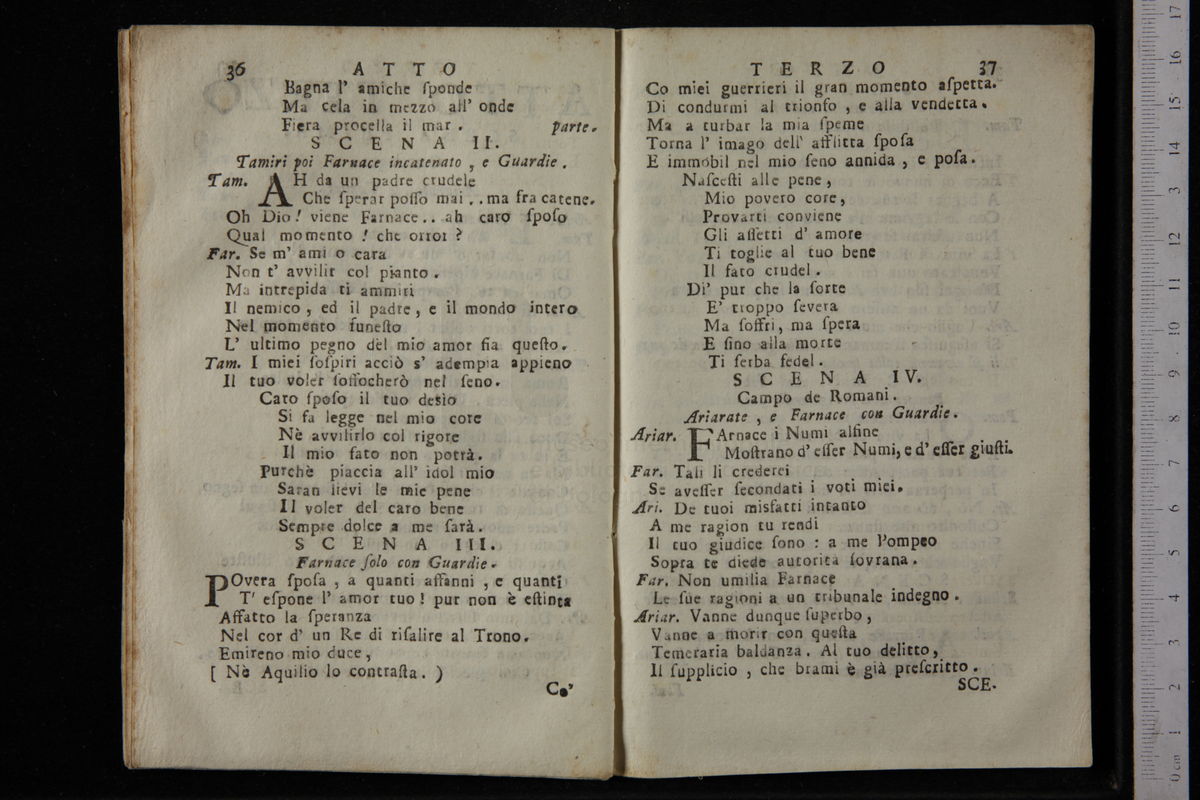 36 ATTO
Bagna l' amiche ſponde
Ma cela in mezzo all' onde
Fiera procella il mar. parte.
SCENA II.
Tamiri poi Farnace incatenato, e Guardie.
Tam. AH da un padre crudele
Che ſperar poſſo mai.. ma fra catene.
Oh Dio! viene Farnace.. ah caro ſpoſo
Qual momento! che orror?
Far. Se m' ami o cara
Non t' avvilir col pianto.
Ma intrepida ti ammiri
Il nemico, ed il padre, e il mondo intero
Nel momento funeſto
L' ultimo pegno del mio amor ſia queſto.
Tam. I miei ſoſpiri acciò s' adempia appieno
Il tuo voler ſoffocherò nel ſeno.
Caro ſpoſo il tuo desìo
Si fa legge nel mio core
Nè avvilirlo col rigore
Il mio fato non potrà.
Purchè piaccia all' idol mio
Saran lievi le mie pene
Il voler del caro bene
Sempre dolce a me ſarà.
SCENA III.
Farnace ſolo con Guardie.
POvera ſpoſa, a quanti affanni, e quanti
T' eſpone l' amor tuo! pur non è eſtinta
Affatto la ſperanza
Nel cor d' un Re di riſalire al Trono.
Emireno mio duce,
[ Nè Aquilio lo contraſta. )
Co'
TERZO 37
Co miei guerrieri il gran momento aſpetta.
Di condurmi al trionfo, e alla vendetta.
Ma a turbar la mia ſpeme
Torna l' imago dell' afflitta ſpoſa
E immobil nel mio ſeno annida, e poſa.
Naſceſti alle pene,
Mio povero core,
Provarti conviene
Gli affetti d' amore
Ti toglie al tuo bene
Il fato crudel.
Di' pur che la ſorte
E' troppo ſevera
Ma ſoffri, ma ſpera
E ſino alla morte
Ti ſerba fedel.
SCENA IV.
Campo de Romani.
Ariarate, e Farnace con Guardie.
Ariar. FArnace i Numi alfine
Moſtrano d' eſſer Numi, e d' eſſer giuſti.
Far. Tali li crederei
Se aveſſer ſecondati i voti miei.
Ari. De tuoi misfatti intanto
A me ragion tu rendi
Il tuo giudice ſono: a me Pompeo
Sopra te diede autorità ſovrana.
Far. Non umilia Farnace
Le ſue ragioni a un tribunale indegno.
Ariar. Vanne dunque ſuperbo,
Vanne a morir con queſta
Temeraria baldanza. Al tuo delitto,
Il ſupplicio, che brami è già preſcritto.
SCE.
0 cm 1 2 3 4 5 6 7 8 9 10 11 12 13 14 15 16 17